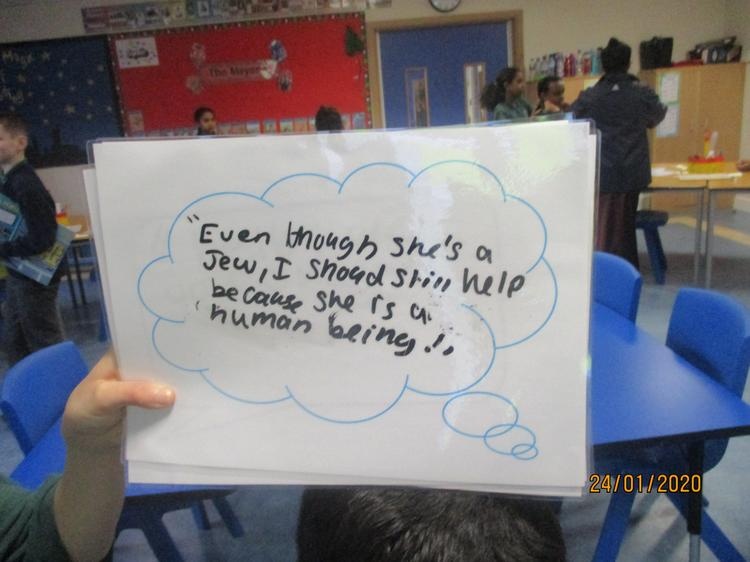 The Mayans
"Even though she's a
Jew, I should still help
because she is a
human being!"
24/01/2020